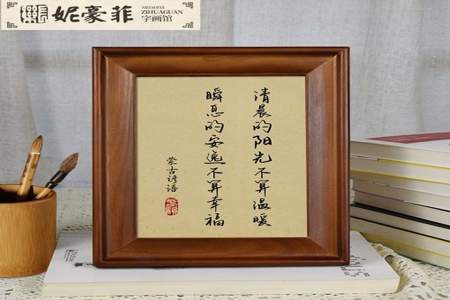 妮豪菲
NIHAOFEI
ZIHUAGUAN
字画馆
清晨的阳光不算温暖
瞬息的安逸不算幸福
蒙古谚语